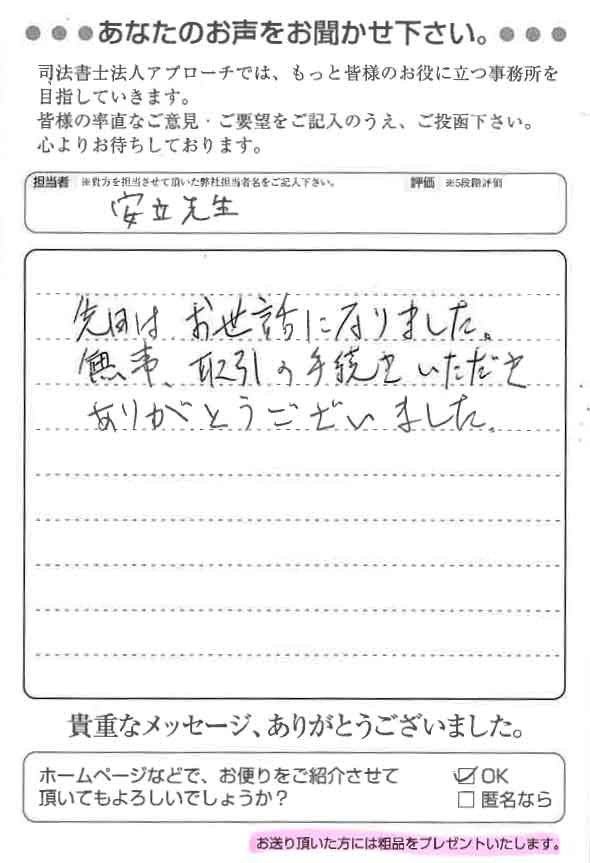 ●●●あなたのお声をお聞かせ下さい。●●●
司法書士法人アプローチでは、もっと皆様のお役に立つ事務所を
目指していきます。
皆様の率直なご意見・ご要望をご記入のうえ、ご投函下さい。
心よりお待ちしております。
担当者 ※貴方を担当させて頂いた弊社担当者名をご記入下さい。 評価 ※5段階評価
安立先生
先日は お世話になりました。
無事、取引の手続きいただき
ありがとうございました。
貴重なメッセージ、ありがとうございました。
ホームページなどで、お便りをご紹介させて
頂いてもよろしいでしょうか?
☑OK
□匿名なら
お送り頂いた方には粗品をプレゼントいたします。